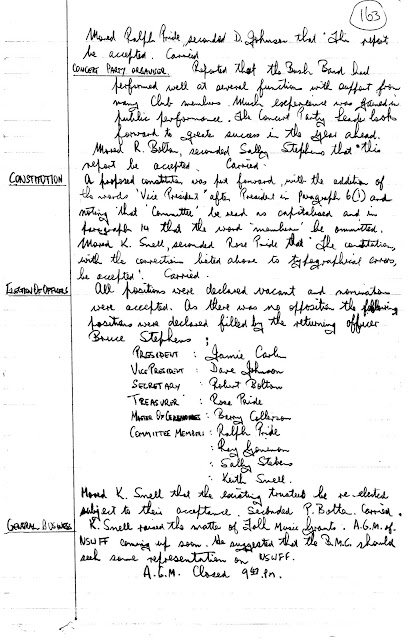 163
Moved Ralph Pride, seconded D. Johnson that "This report
be accepted. Carried
CONCERT PARTY ORGANISER. Reported that the Bush Band had
performed well at several function with support from
many Club members. Much experience was gained in
public performance. The Concert Party heads looks
forward to greater success in the year ahead.
Moved R. Bolton, seconded Sally Stephens that "this
report be accepted. Carried.
CONSTITUTION
A proposed constitution was put forward, with the addition of
the words 'Vice President' after President in Paragraph 6(1) and
noting that 'Committee' be read as capitalised and in
paragraph 14 that the word "members" be ommitted.
Moved K. Snell, seconded Rose Pride that "The constitution,
with the correction listed above to typographical errors,
be accepted". Carried.
ELECTION OF OFFICERS
All positions were declared vacant and nominations
were accepted. As there was no opposition the following
positions were declared filled by the returning officer
Bruce Stephens ;
PRESIDENT : Jamie Carlin
VICE PRESIDENT : Dave Johnson
SECRETARY : Robert Bolton
TREASURER : Rose Pride
MASTER OF CEREMONIES : Berry Collerson
COMMITTEE MEMBERS : Ralph Pride
: Ray
: Sally Stephens
: Keith Snell.
Moved K. Snell that the existing trustees be re-elected
subject to their acceptance. Seconded P. Bolton. Carried.
GENERAL BUSINESS
K. Snell raised the matter of Folk Music Grants. A.G.M. of
NSWFF coming up soon. He suggested that the B.M.C. should
seek some representation on NSWFF.
A.G.M. Closed 9 P.m.